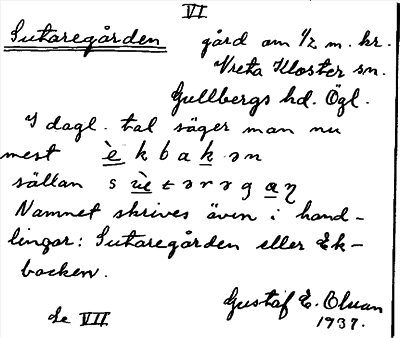 VI
Sutaregården gård om 1/2 m. kr.
Vreta Kloster sn.
Gullbergs hd. Ögl.
I dagl. tal säger man nu
mest è k b a k ə n
sällan s ùe t ə r ə g a ɳ
Namnet skrives även i hand-
lingar: Sutaregården eller Ek-
backen.
Gustaf E. Olsson
1937.
Se VII